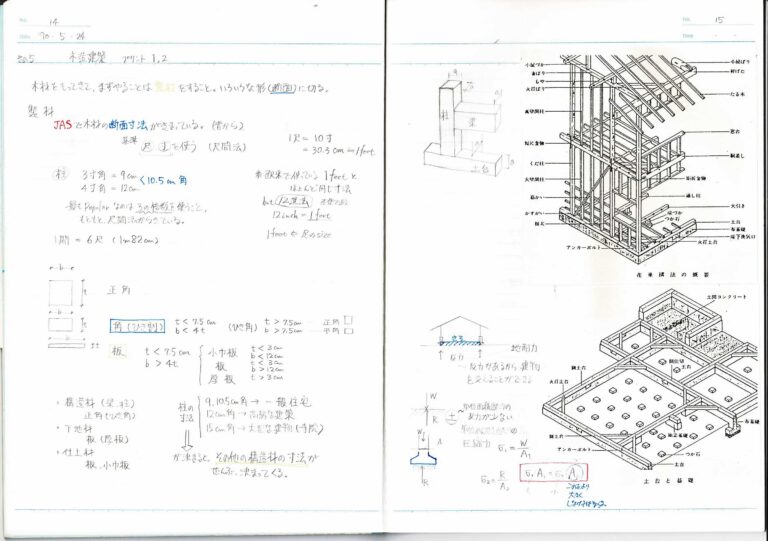 No. 14
Date 90・5・24
No.5 木造建築 プリント1,2
木材をもってきて、まずやることは製材をすること。いろいろな形(断面)に切る。
製材
JASで木材の断面寸法がきまっている。(昔から)
基準 尺 を使う (尺間法)
1尺=10寸
=30.3cm≒1feet
柱 3寸角=9cm
4寸角=12cm
<10.5cm角
一番Popularなのは3つの種類を使うこと。
もともと、尺間法からきている。
1間=6尺(1m82cm)
欧米で使っている1feetと
ほとんど同じ寸法
but
12inch=1feet
1feet → 足のsize
正角
角(ひき割) t<7.5cm
b<4t
(ひき角) t>7.5cm 正角
b>7.5cm 平角
板 t<7.5cm
b>4t
小巾板 t<3cm
b<12cm
板 t<3cm
b>12cm
厚板 t>3cm
・構造材(梁、柱)
正角、ひき角
・下地材
板(厚板)
・仕上材
板、小巾板
柱の寸法
9,10.5cm角→一般住宅
12cm角→高級な建築
15cm角→大きな建物(寺院)
が決まると、その他の構造材の寸法が
ぜんぶ決まってくる。
No. 15
Date
柱
梁
土台
小屋づか
はり
もや
火打ばり
小屋ばり
軒げた
たる木
真壁間柱
窓台
胴差し
羽子板金物
くだ柱
大壁間柱
筋かい
かすがい
根太
通し柱
大引き
床づか
つか石
土台
布基礎
床下換気口
アンカーボルト
火打土台
在来構法の概要
地耐力
反力
反力があるから建物
を支えることができる
W
R
σ₁=W/A₁
σ₂=R/A₂
これより
大きく
しなければならない
土間コンクリート
側土台
間仕切
土台
火打土台
布基礎
側土台
独立基礎
つか石
アンカーボルト
土台
土台と基礎